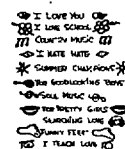 I LOVE YOU
I LOVE SCHOOL
COUNTRY MUSIC
I HATE HATE
SUMMER CHAMPIONS
TOO GOODLOOKING BOYS
SOUL MUSIC
TOO PRETTY GIRLS
SEARCHING LOVE
FUNNY FEET
I TEACH LOVE